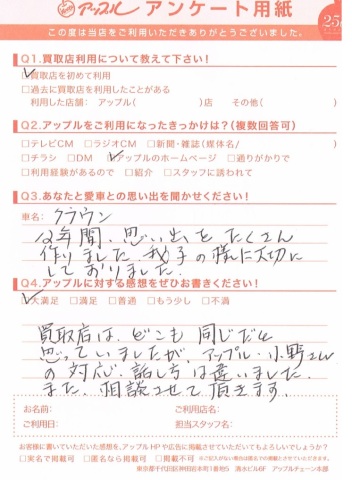 アップル アンケート用紙
この度は当店をご利用いただきありがとうございました。
Q1.買取店利用について教えて下さい!
☑買取店を初めて利用
□過去に買取店を利用したことがある
利用した店舗: アップル( )店 その他( )
Q2.アップルをご利用になったきっかけは?(複数回答可)
□テレビCM □ラジオCM □新聞・雑誌(媒体名/ )
□チラシ □DM ☑アップルのホームページ □通りがかりで
□利用経験があるので □紹介 □スタッフに誘われて
Q3.あなたと愛車との思い出を聞かせください!
車名: クラウン
12年間、思い出をたくさん
作りました。我子の様に大切に
しておりました。
Q4.アップルに対する感想をぜひお書きください!
☑大満足 □満足 □普通 □もう少し □不満
買取店は、どこも同じだと
思っていましたが、アップル・小野さん
の対応、話し方は違いました。
また、相談させて頂きます。
お名前: ご利用店名:
ご利用日: 担当スタッフ名:
お客様に書いていただいた感想を、アップルHPや広告に掲載させていただいてもよろしいでしょうか?
□実名で掲載可 □匿名なら掲載可 □掲載不可 ※ご記入がない場合は匿名でのみ掲載とさせていただきます。
東京都千代田区神田岩本町1番地5 清水ビル6F アップルチェーン本部